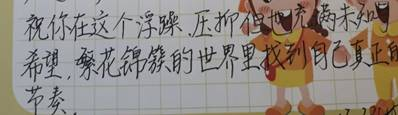 祝你在这个浮躁、压抑但也充满未知与
希望,繁花锦簇的世界里找到自己真正的
节奏。